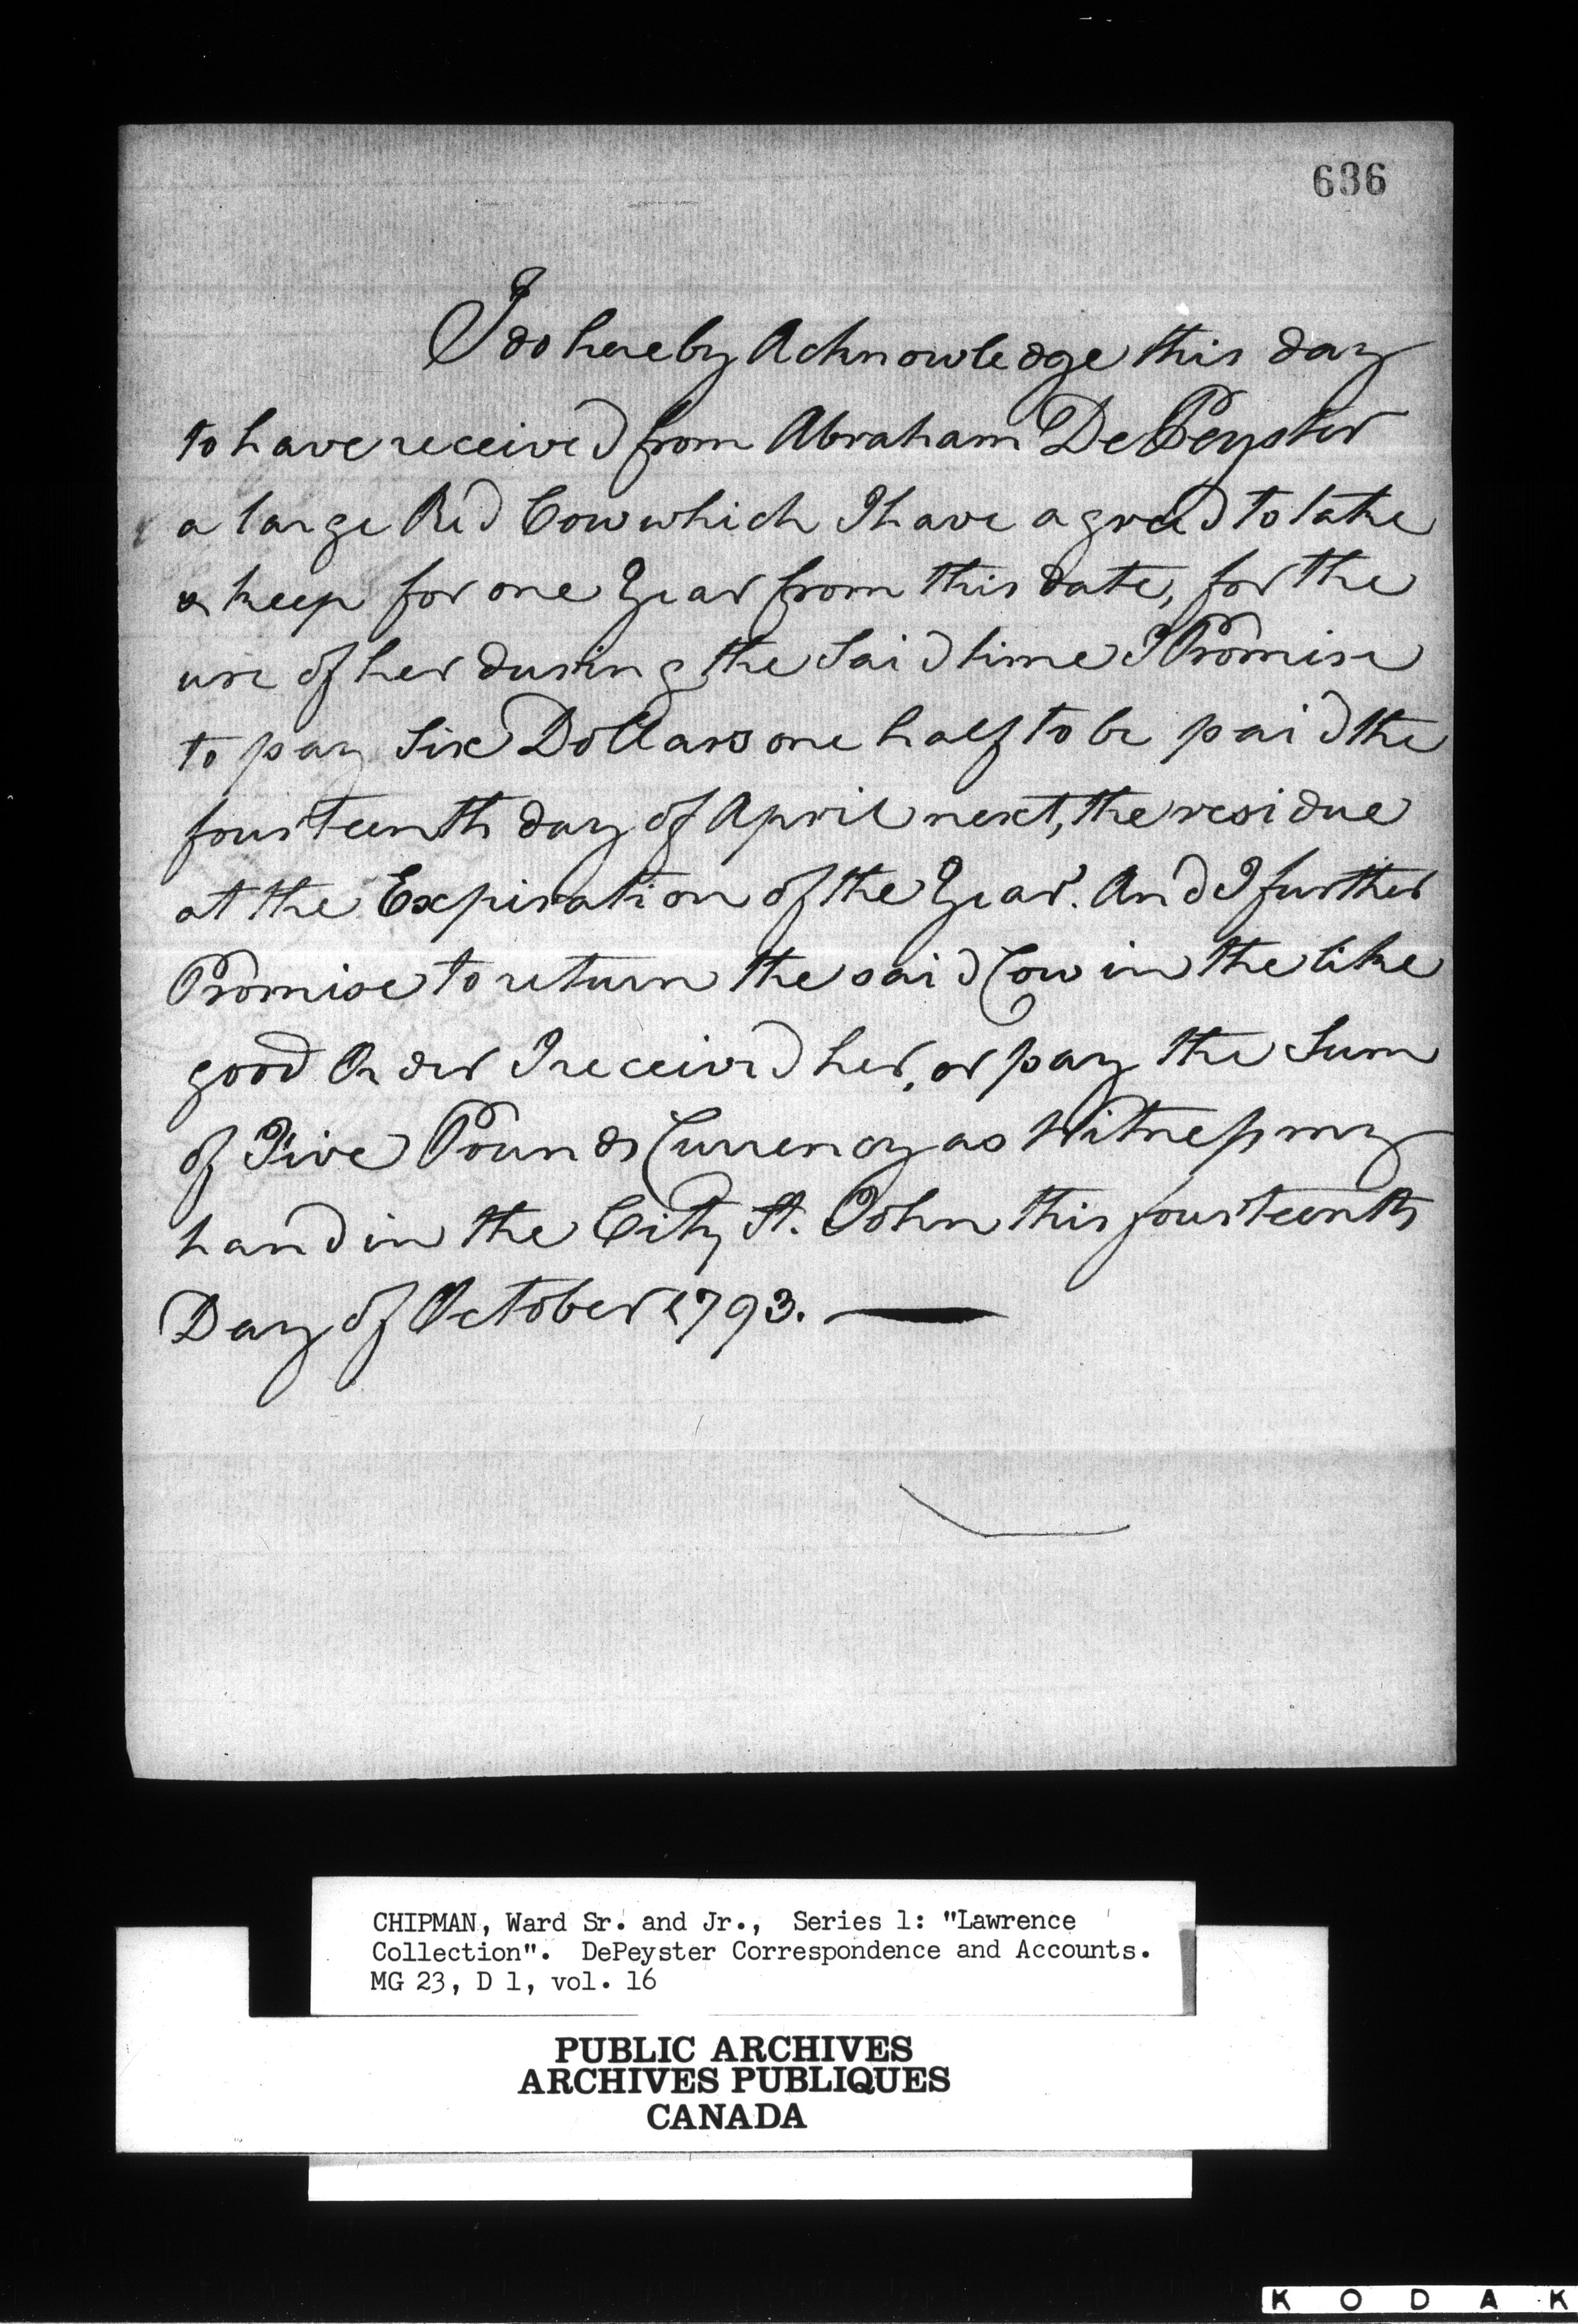 636
I do hereby Acknowledge this day
to have received from Abraham DePeyster
a large Red Cow which I have agreed to take
& keep for one Year from this date, for the
use of her during the Said time I Promise
to pay Six Dollars one half to be paid the
fourteenth day of April next, the residue
at the Expiration of the Year. And I further
Promise to return the said Cow in the like
good Order I received her, or pay the Sum
of Five Pounds Currency as Witness my
hand in the City St. John this fourteenth
Day of October 1793.
CHIPMAN, Ward Sr. and Jr., Series 1: "Lawrence
Collection". DePeyster Correspondence and Accounts.
MG 23, D 1, vol. 16
PUBLIC ARCHIVES
ARCHIVES PUBLIQUES
CANADA
KODAK